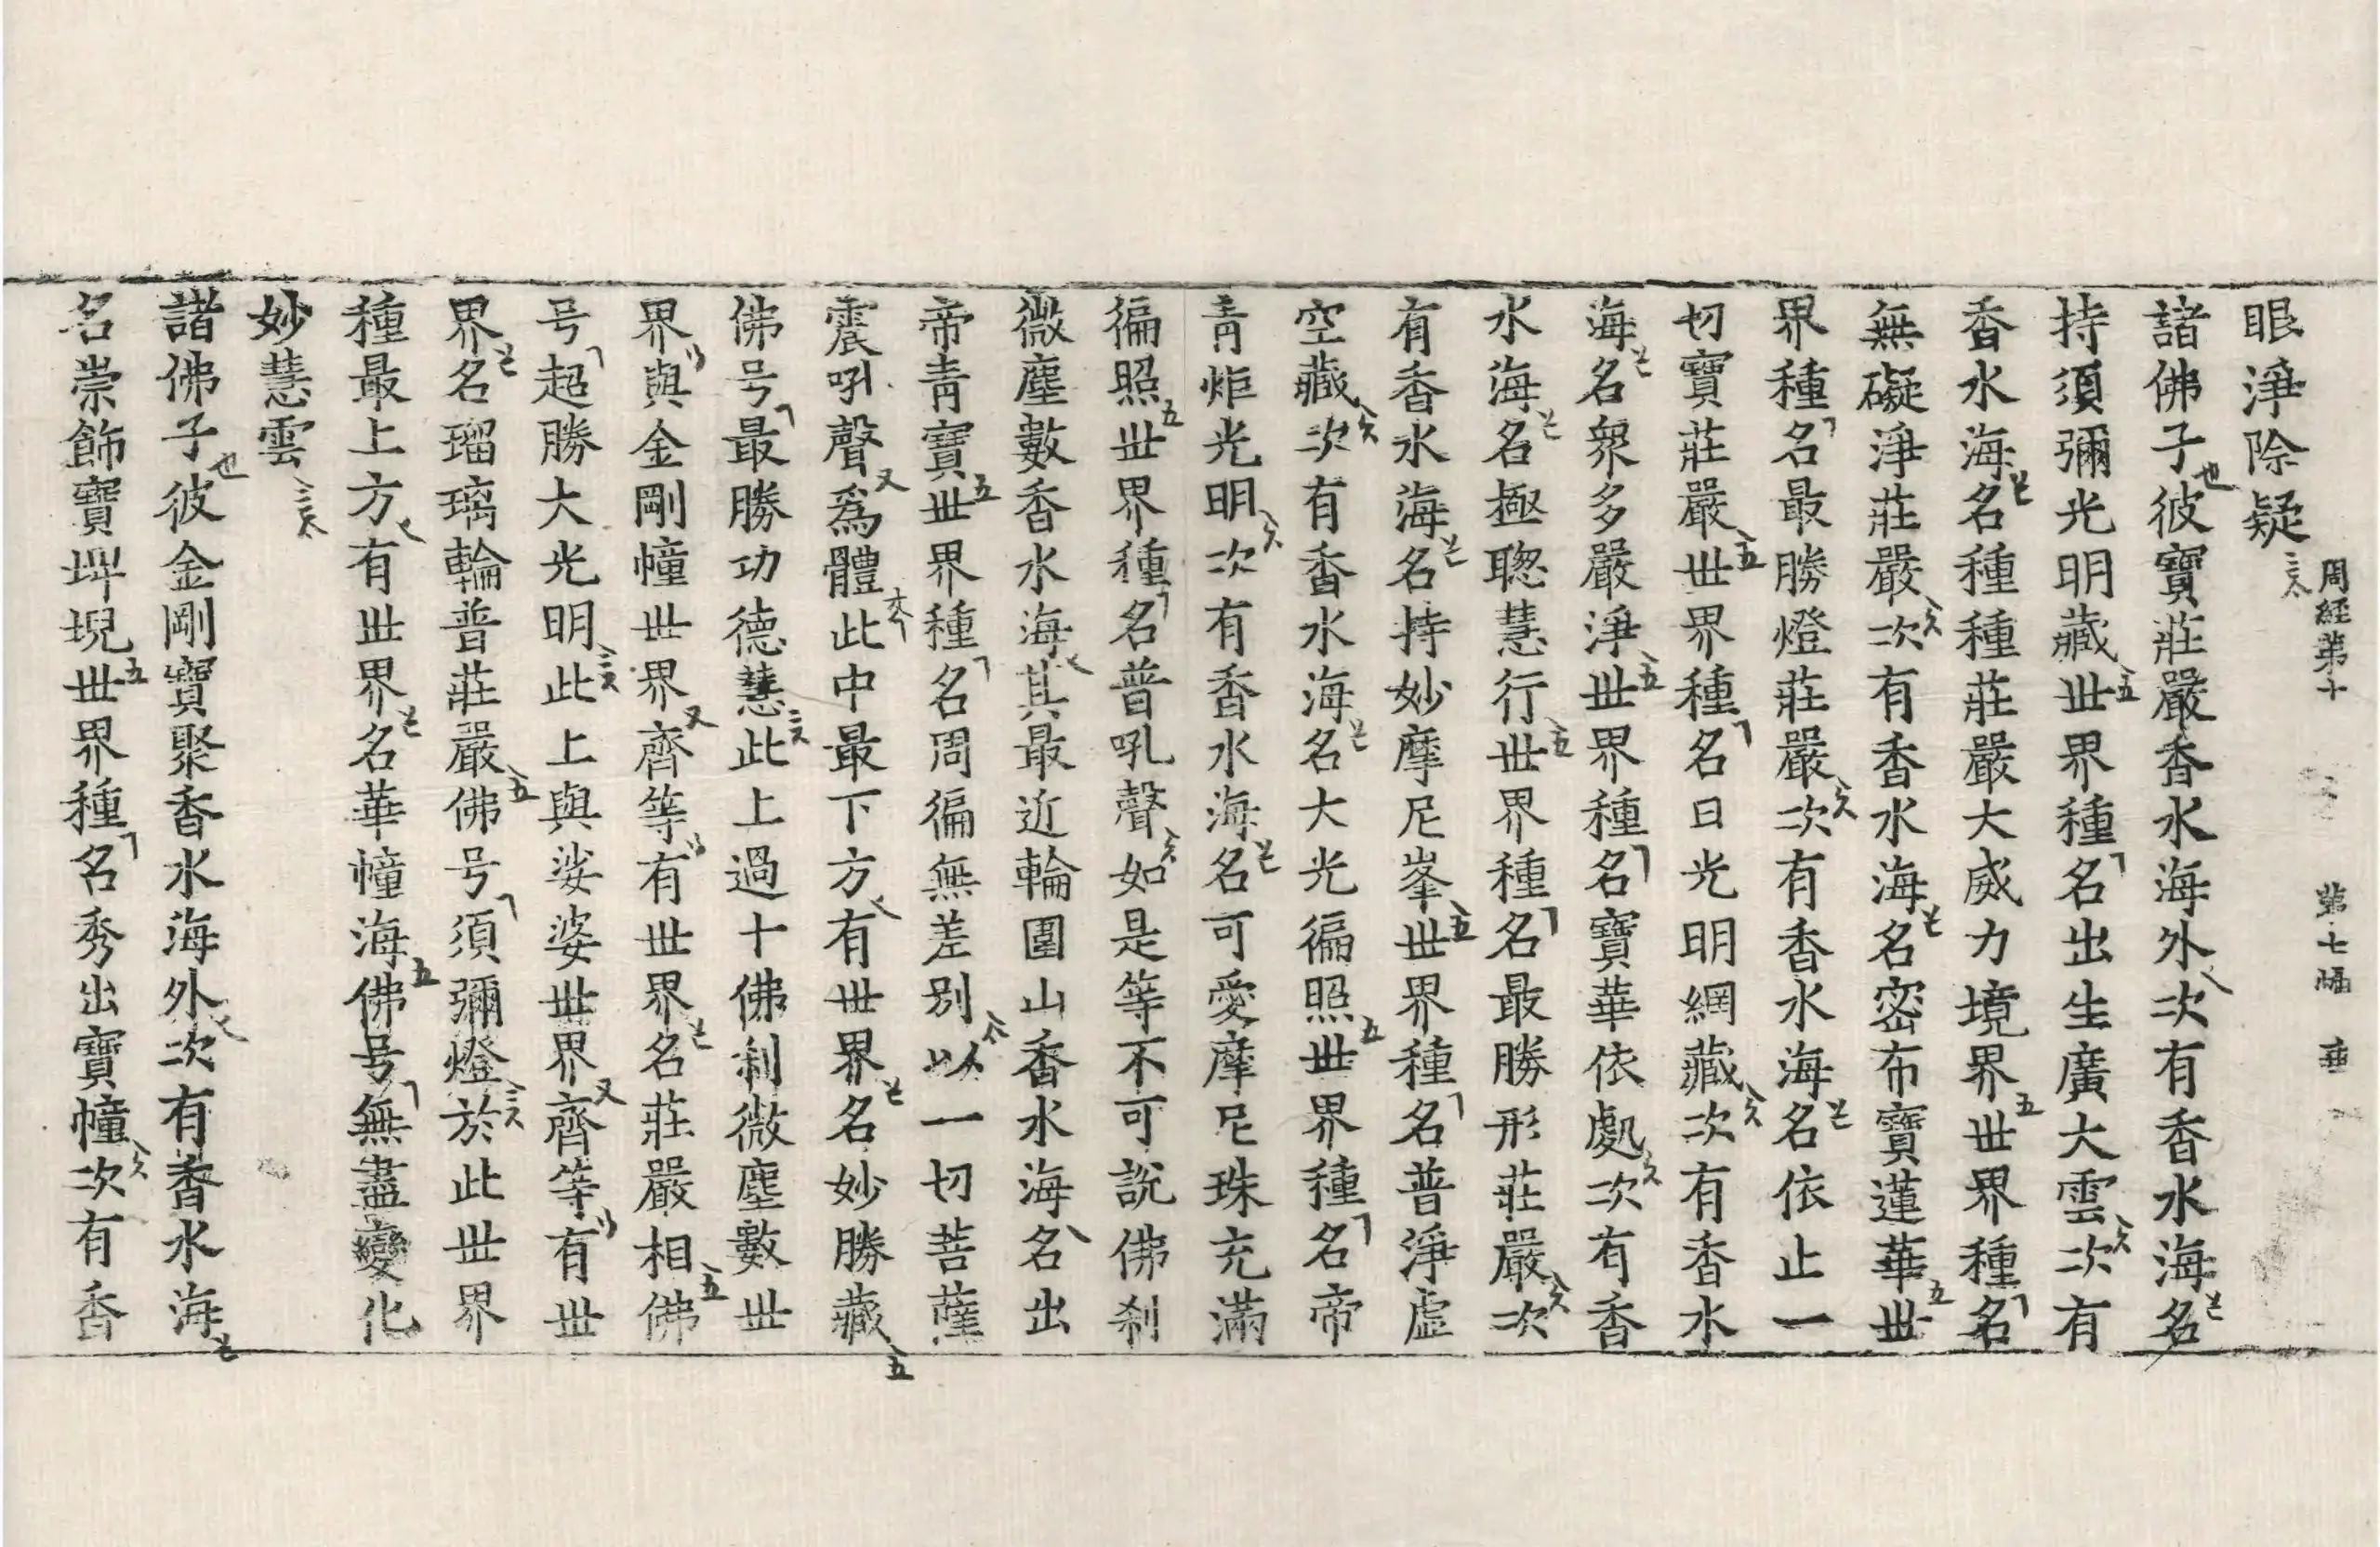 眼淨除疑
周経第十 第七幅 垂
諸佛子彼寶莊嚴香水海外次有香水海名
持須彌光明藏世界種名出生廣大雲次有
香水海名種種莊嚴大威力境界世界種名
無礙淨莊嚴次有香水海名密布寶蓮華世
界種名最勝燈莊嚴次有香水海名依止一
切寶莊嚴世界種名日光明網藏次有香水
海名衆多嚴淨世界種名寶華依處次有香
水海名極聦慧行世界種名最勝形莊嚴次
有香水海名持妙摩尼峯世界種名普淨虛
空藏次有香水海名大光徧照世界種名帝
青炬光明次有香水海名可愛摩尼珠充滿
徧照世界種名普吼聲如是等不可說佛刹
微塵數香水海其最近輪圍山香水海名出
帝青寶世界種名周徧無差別以一切菩薩
震吼聲爲體此中最下方有世界名妙勝藏
佛号最勝功德慧此上過十佛刹微塵數世
界與金剛幢世界齊等有世界名莊嚴相佛
号超勝大光明此上與娑婆世界齊等有世
界名瑠璃輪普莊嚴佛号須彌燈於此世界
種最上方有世界名華幢海佛号無盡變化
妙慧雲
諸佛子彼金剛寶聚香水海外次有香水海
名崇飾寶埤堄世界種名秀出寶幢次有香